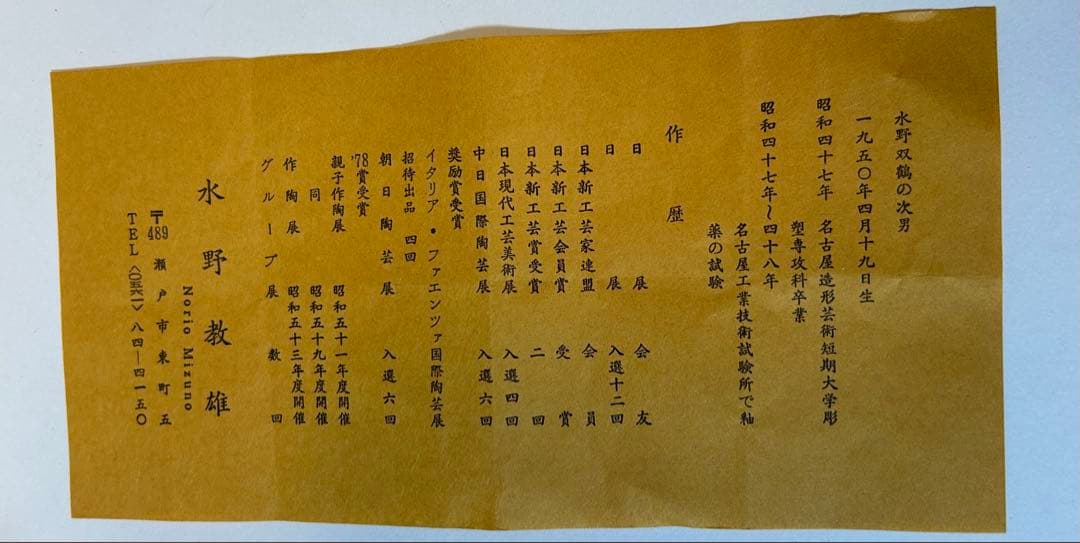 水野双鶴の次男
一九五〇年四月十九日生
昭和四十七年 名古屋造形芸術短期大学彫
塑専攻科卒業
昭和四十七年〜四十八年
名古屋工業技術試験所で釉
薬の試験
作歴
日展 会友
日展 入選十二回
日本新工芸家連盟 会員
日本新工芸会員賞 受賞
日本新工芸賞受賞 二回
日本現代工芸美術展 入選四回
中日国際陶芸展 入選六回
奨励賞受賞
イタリア・ファエンツァ国際陶芸展
招待出品 四回
朝日陶芸展 入選六回
'78賞受賞
親子作陶展 昭和五十一年度開催
同 昭和五十九年度開催
作陶展 昭和五十三年度開催
グループ展 数回
水野教雄
Norio Mizuno
〒489 瀬戸市東町五
TEL〈〇五六一〉八四―四一五〇